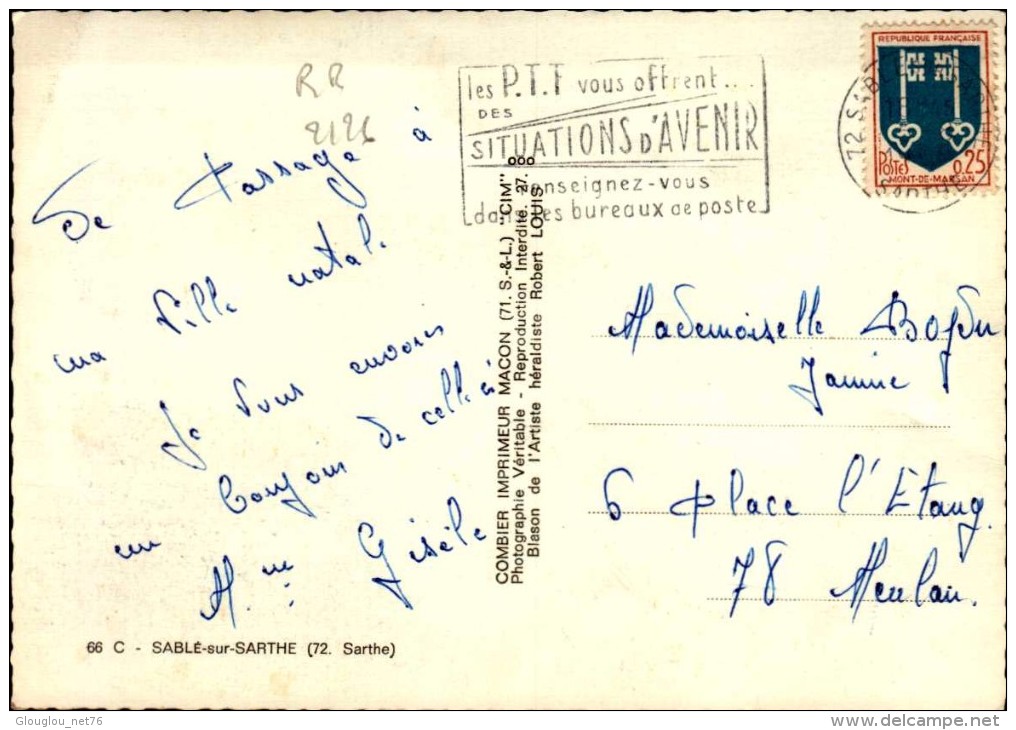 RR
2126
les P.T.T vous offrent...
DES
SITUATIONS D'AVENIR
enseignez-vous
dans les bureaux de poste
72 SABLE
SARTHE
REPUBLIQUE FRANÇAISE
POSTES 0,25
MONT-DE-MARSAN
De Passage à
ma Ville natale
Je vous envoies
un bonjour de celle ci
Mme Gisèle
COMBIER IMPRIMEUR MACON (71. S.-&-L.) "CIM"
Photographie Véritable - Reproduction Interdite. 27.
Blason de l'Artiste héraldiste Robert LOUIS
Mademoiselle
Janine
6 place l'Etang.
78 Meulan.
66 C - SABLÉ-sur-SARTHE (72. Sarthe)
Glouglou_net76
delcampe.net